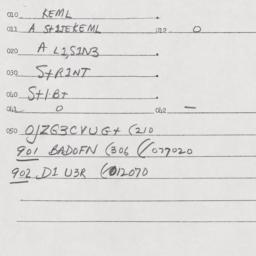 010 KEML
011 A S+1JEKEML 012 0
020 A L1,S1N3
030 S+R1NT
040 S+1B+
041 0 042 —
050 0JZG3CVUG+ (210
901 BADOFN (306 (/077020
902 D1 U3R (/012070